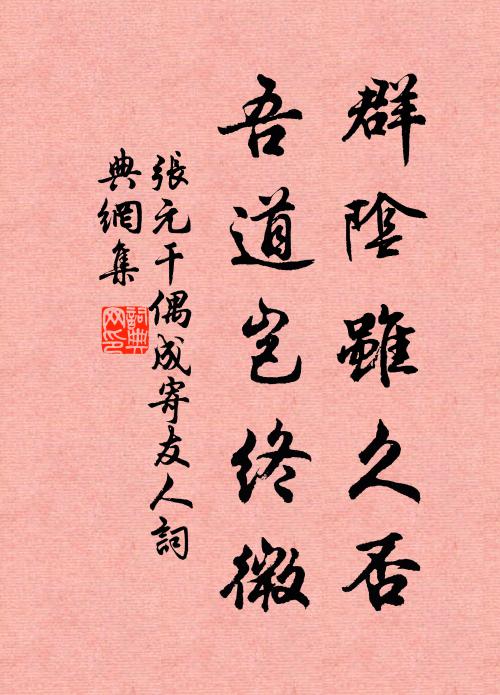 群陰雖久否
吾道岂终微
張元干偶成寄友人詞
典網集
詞典
网印